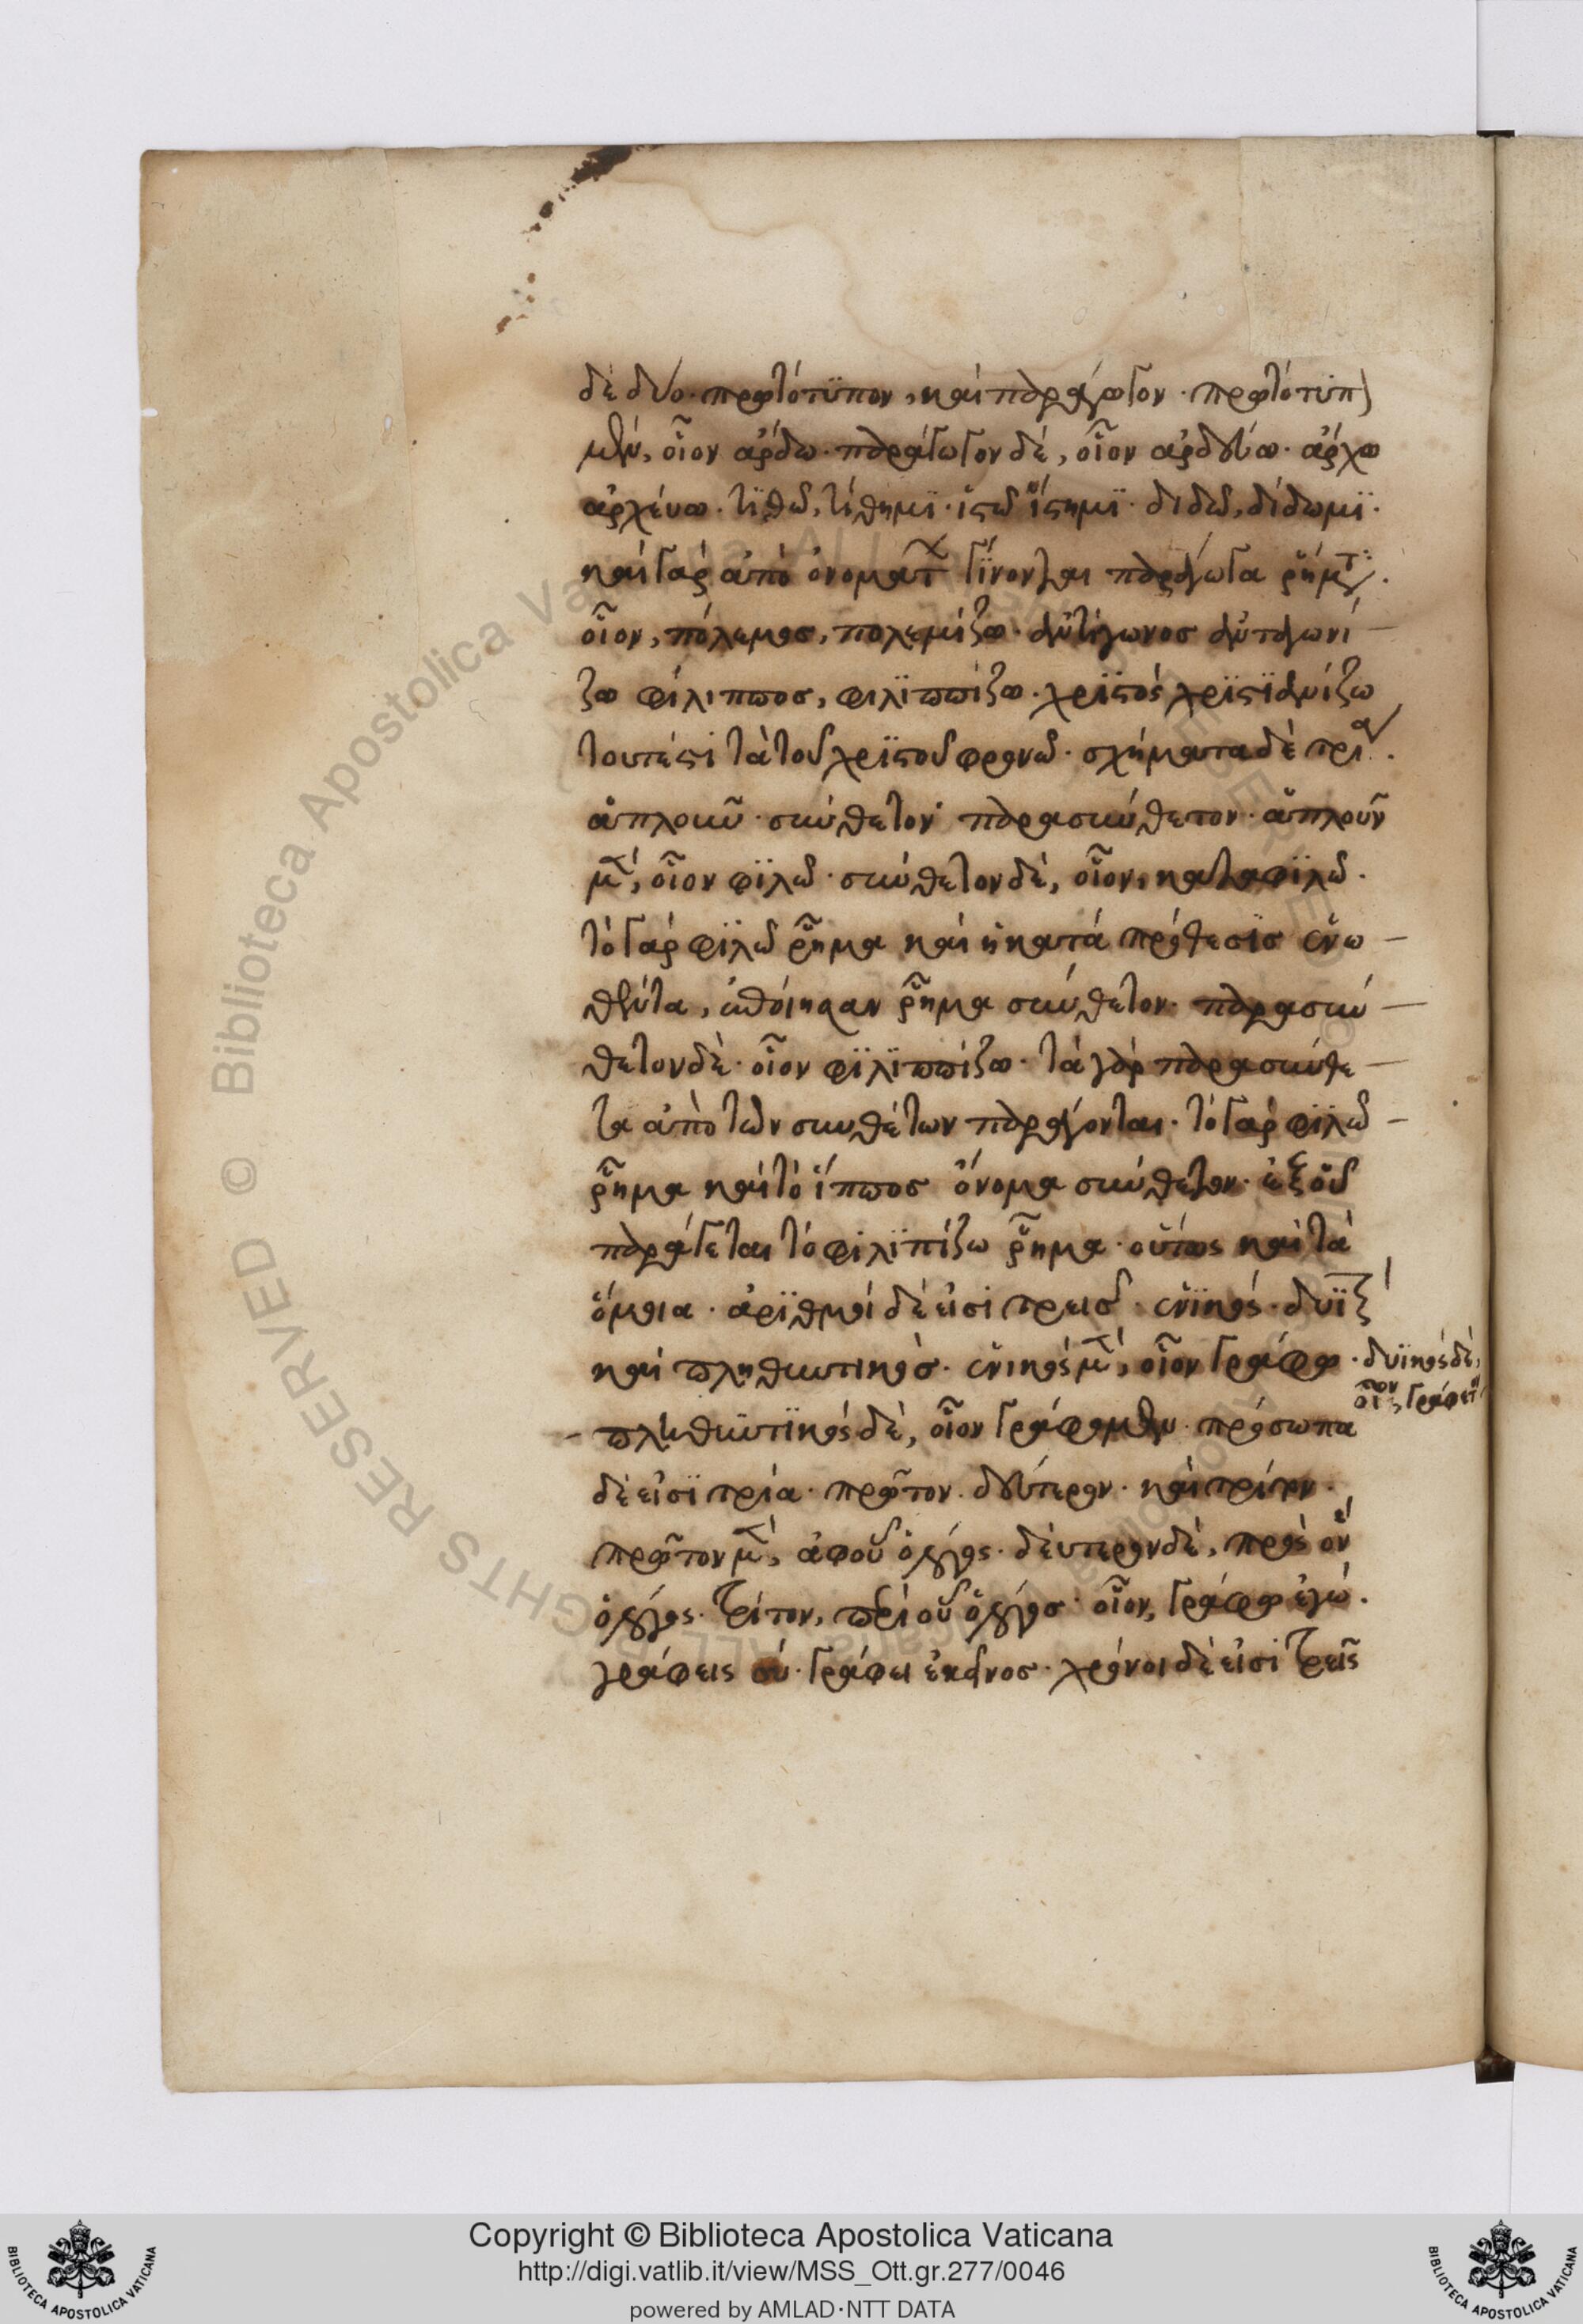 δὲ δύο· πρωτότϋπον, καὶ παράγωγον· πρωτότϋπ
μὲν, οἷον ἄρδω· παράγωγον δὲ, οἷον ἀρδεύω· ἄρχω
ἀρχεύω· τϊθῶ, τίθημϊ· ἱστῶ ἵστημϊ· διδῶ, δίδωμϊ·
καὶ γὰρ ἀπὸ ὀνομάτ γΐνονται παράγωγα ῥήμτ·
οἷον, πόλεμος, πολεμίζω· ἀντίγωνος ἀνταγωνί
ζω φίλιππος, φιλϊππίζω· χρϊστός χρϊστϊανίζω
τουτέστι τὰ τοῦ χρϊστοῦ φρονῶ· σχήματα δὲ τρία·
ἁπλοῦν· σύνθετον· παρασύνθετον· ἁπλοῦν
μὲν, οἷον φϊλῶ· σύνθετον δὲ, οἷον, καταφϊλῶ·
τὸ γὰρ φϊλῶ ῥῆμα καὶ ἡ κατά πρόθεσϊς ἑνω
θέντα, ἐποίησαν ῥῆμα σύνθετον· παρασύν
θετον δὲ· οἷον φϊλϊππίζω· τὰ γὰρ παρασύνθε
τα ἀπὸ τῶν συνθέτων παράγονται· τὸ γὰρ φϊλῶ
ῥῆμα καὶ τὸ ἵππος ὄνομα σύνθετον· ἐξ οὗ
παράγεται τὸ φιλϊπίζω ῥῆμα· οὕτως καὶ τὰ
ὅμοια· ἀρϊθμοὶ δὲ εἰσὶ τρεις· ἑνϊκός· δυϊκ
καὶ πληθυντικός· ἑνικός μὲν, οἷον γράφω· δυϊκός δὲ,
οἷον, γράφετον
πληθϋντϊκός δὲ, οἷον γράφομεν· πρόσωπα
δὲ εἰσϊ τρία· πρῶτον· δεύτερον· καὶ τρίτον·
πρῶτον μὲν, ἀφοῦ ὁ λόγος· δέυτερον δὲ, πρὸς ὃν
ὁ λόγος· τρίτον, περὶ οὗ ὁ λόγος· οἷον, γράφω ἐγώ·
γράφεις σύ· γράφει ἐκεῖνος· χρόνοι δὲ εἰσὶ τρεῖς
Copyright © Biblioteca Apostolica Vaticana
http://digi.vatlib.it/view/MSS_Ott.gr.277/0046
powered by AMLAD·NTT DATA